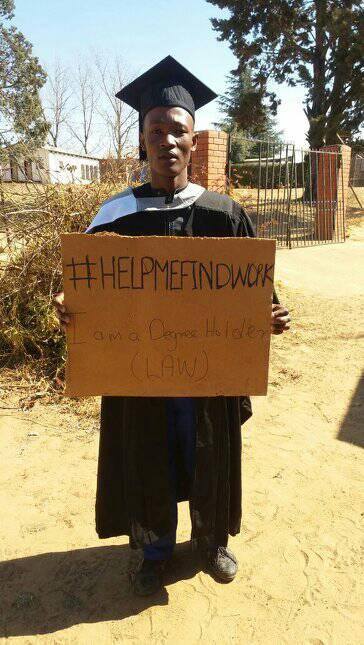 #HELPMEFINDWORK
I am a Degree Holder
(LAW)